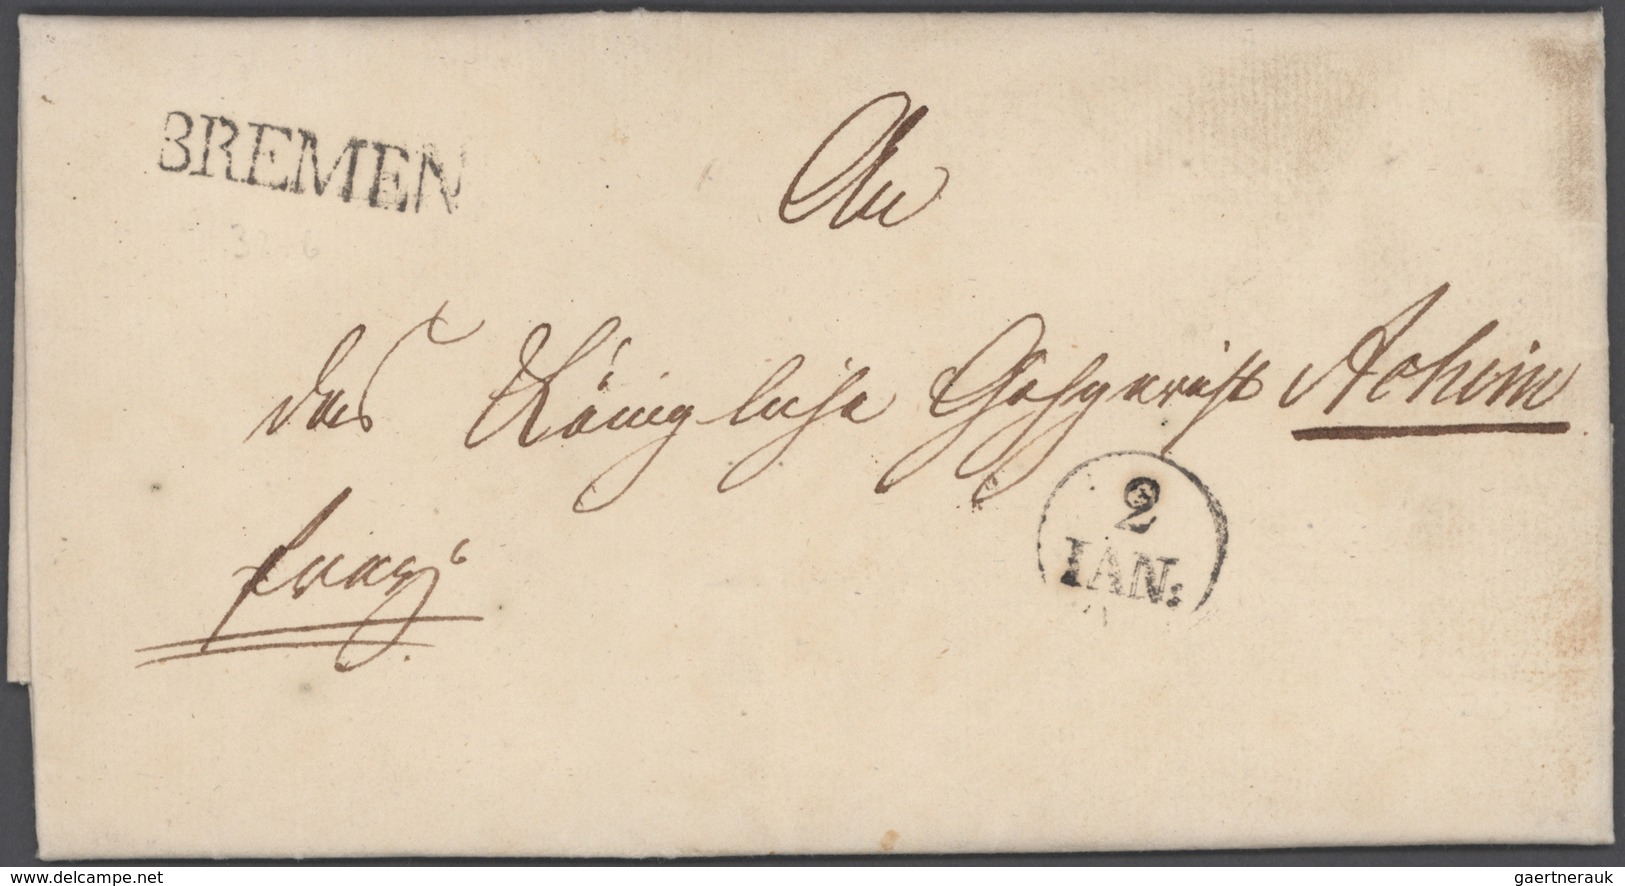 BREMEN
An
das Königliche Gohgericht Achim
franco
2
IAN:
© www.delcampe.com
gaertnerauk